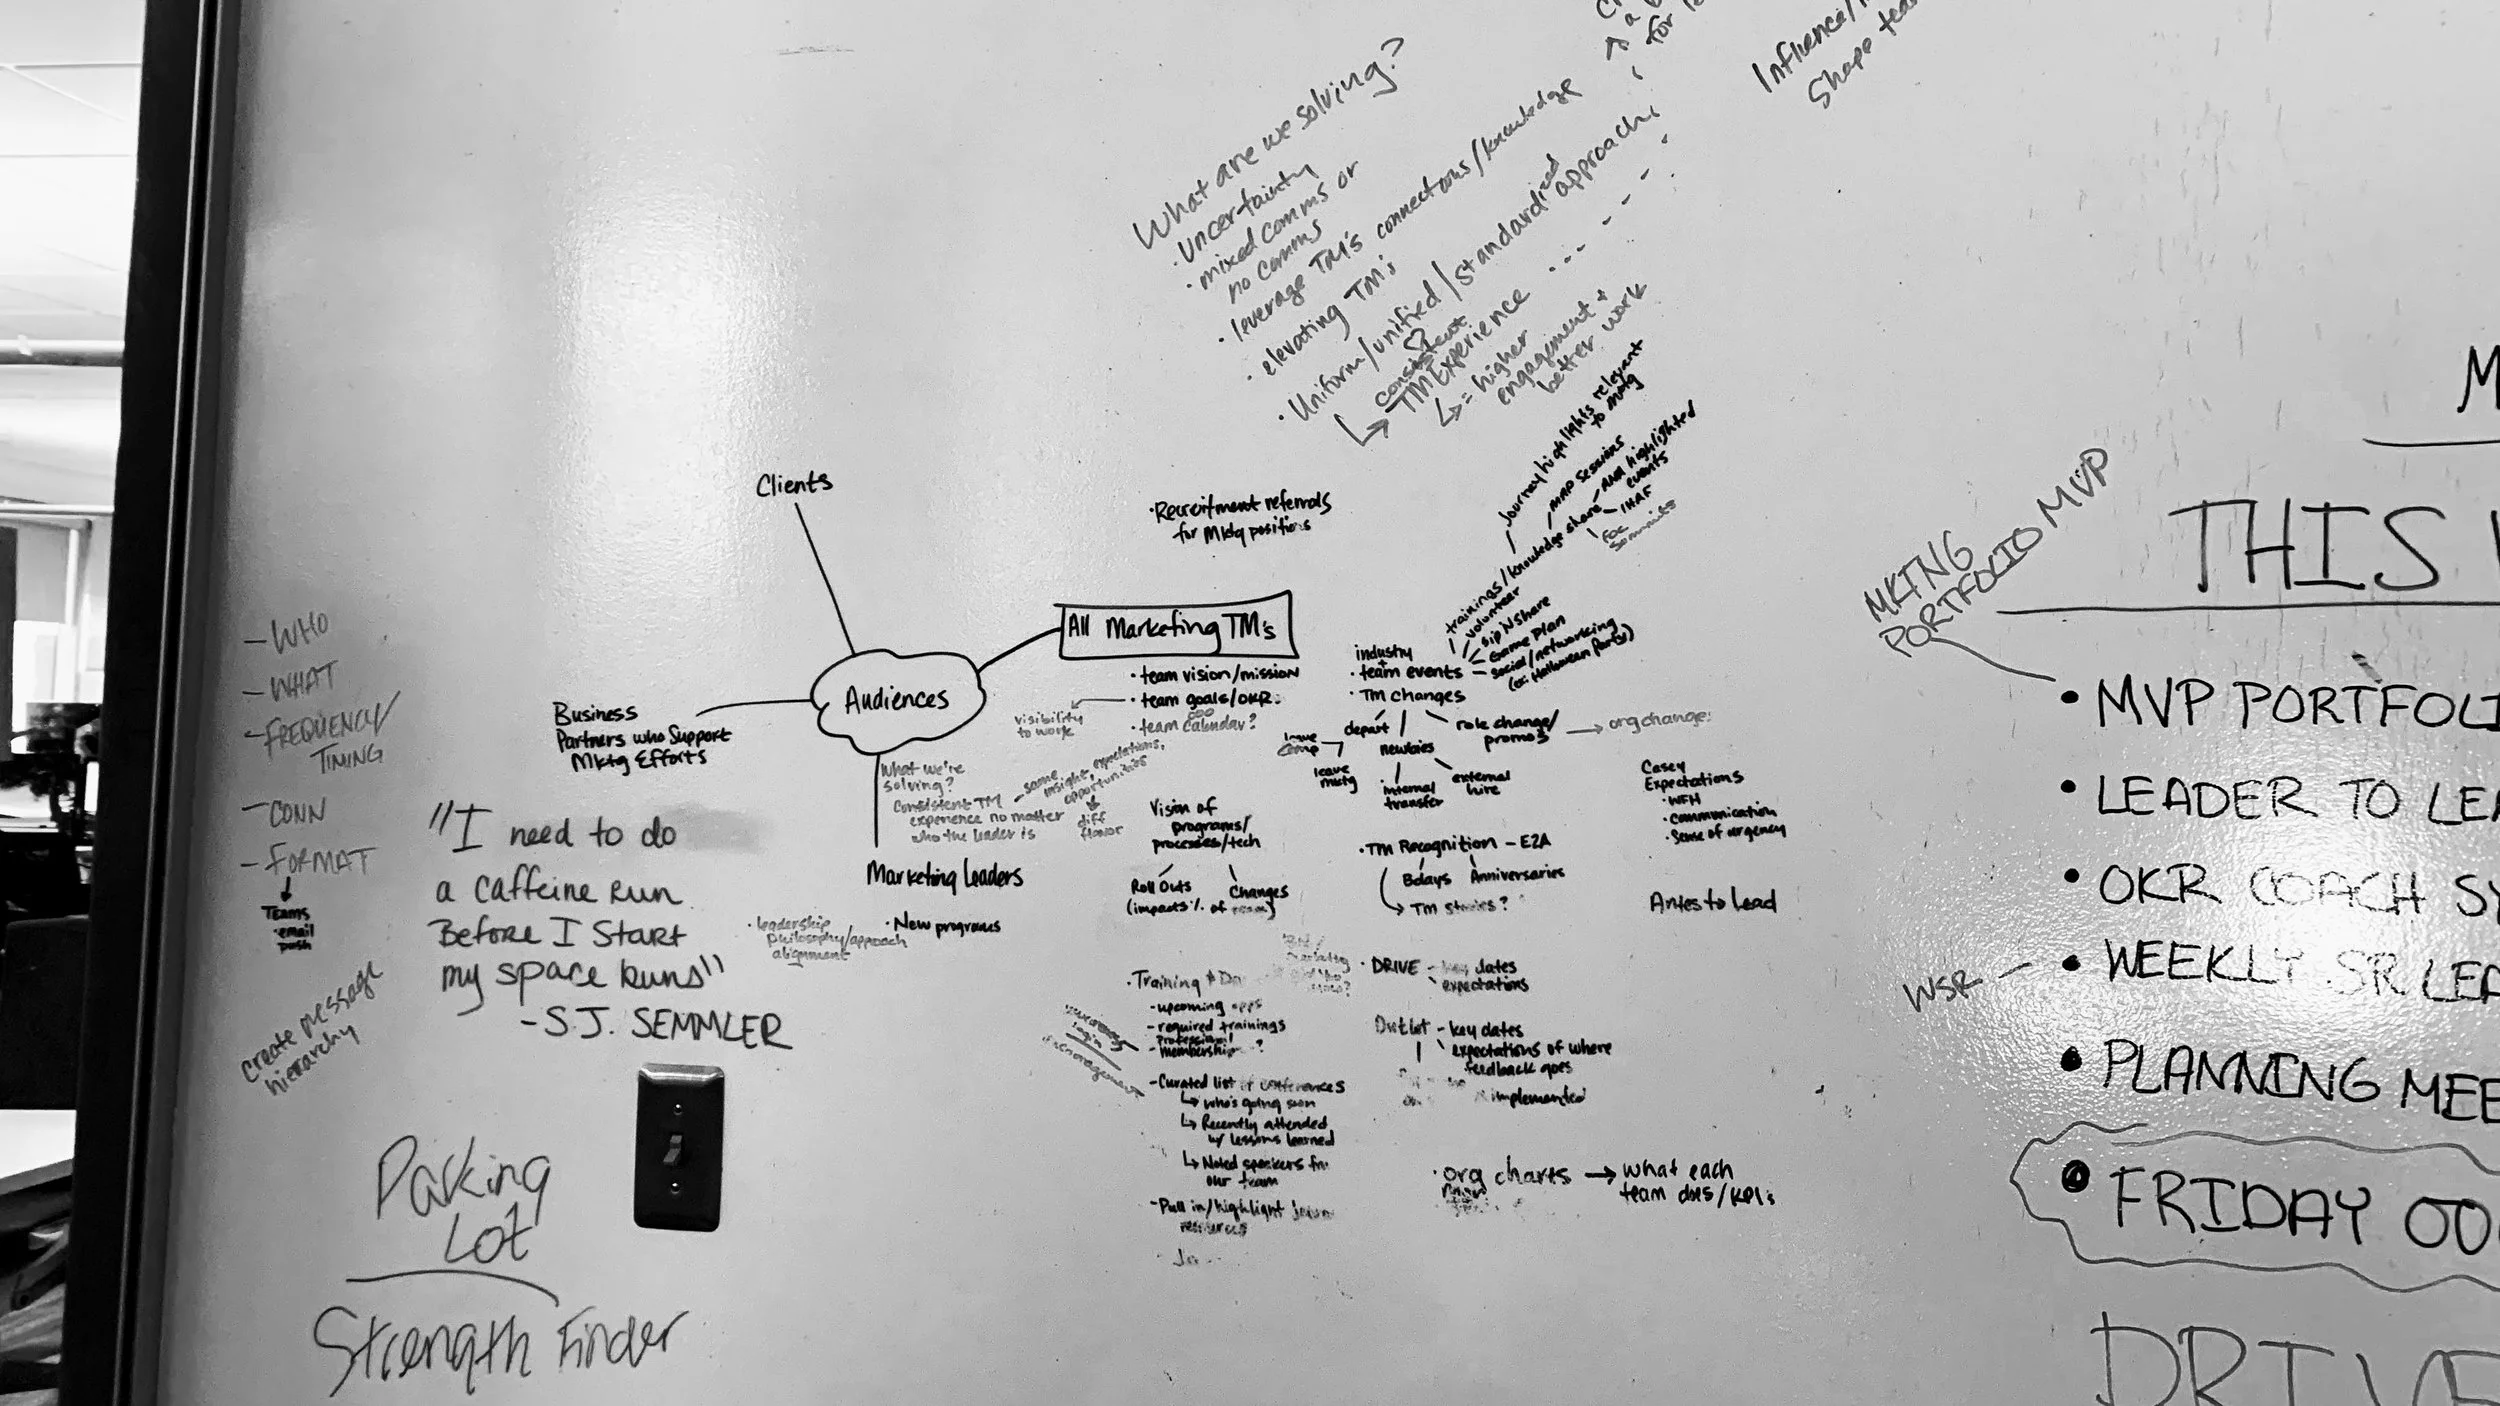 What are we solving?
· Uncertainty
· mixed comms or
no comms
· leverage TM's connections/knowledge
· elevating TM's
· Uniform/unified/standardized approach
consistent
TM Experience
= higher
engagement +
better work
for
Influence/
Shape
Clients
· Recruitment referrals
for Mktg positions
Journey highlights relevant
to mktg
MRP sessions
ANA highlighted
events
- IHAF
Summits
trainings/knowledge share
volunteer
Sip N Share
Game Plan
- social/networking
(ex: Halloween Party)
industry
+
· team events
· TM changes
depart
leave
comp
leave
mktg
newbies
internal
transfer
external
hire
role change/
promos
org change
All Marketing TM's
· team vision/mission
· team goals/OKRs
visibility
to work
· team calendar?
Audiences
Business
Partners who Support
Mktg Efforts
What we're
solving?
Consistent TM
experience no matter
who the leader is
same
insight, expectations,
opportunities
diff
flavor
Marketing Leaders
· leadership
philosophy/approach
alignment
· New programs
Vision of
programs/
processes/tech
Roll Outs
Changes
(impacts % of
· TM Recognition - E2A
Bdays
Anniversaries
TM stories?
Casey
Expectations
· WFH
· Communication
· Sense of urgency
Antes to Lead
· Training &
- upcoming opps
- required trainings
professional
- memberships ?
- Curated list of conferences
who's going soon
Recently attended
w/ lessons learned
Noted speakers fm
our team
- Pull in/highlight
resources
· DRIVE - key dates
expectations
Outlet - key dates
expectations of where
feedback goes
implemented
· org charts → what each
team does/KPIs
- WHO
- WHAT
- FREQUENCY/
TIMING
- CONN
- FORMAT
Teams
email
push
Create message
hierarchy
"I need to do
a caffeine run
Before I Start
my space runs"
- S.J. SEMMLER
Parking
Lot
Strength Finder
M
THIS
MKTING
PORTFOLIO MVP
· MVP PORTFOLI
· LEADER TO LEA
· OKR COACH SY
WSR - · WEEKLY SR LEA
· PLANNING MEE
· FRIDAY OO
DRIVE